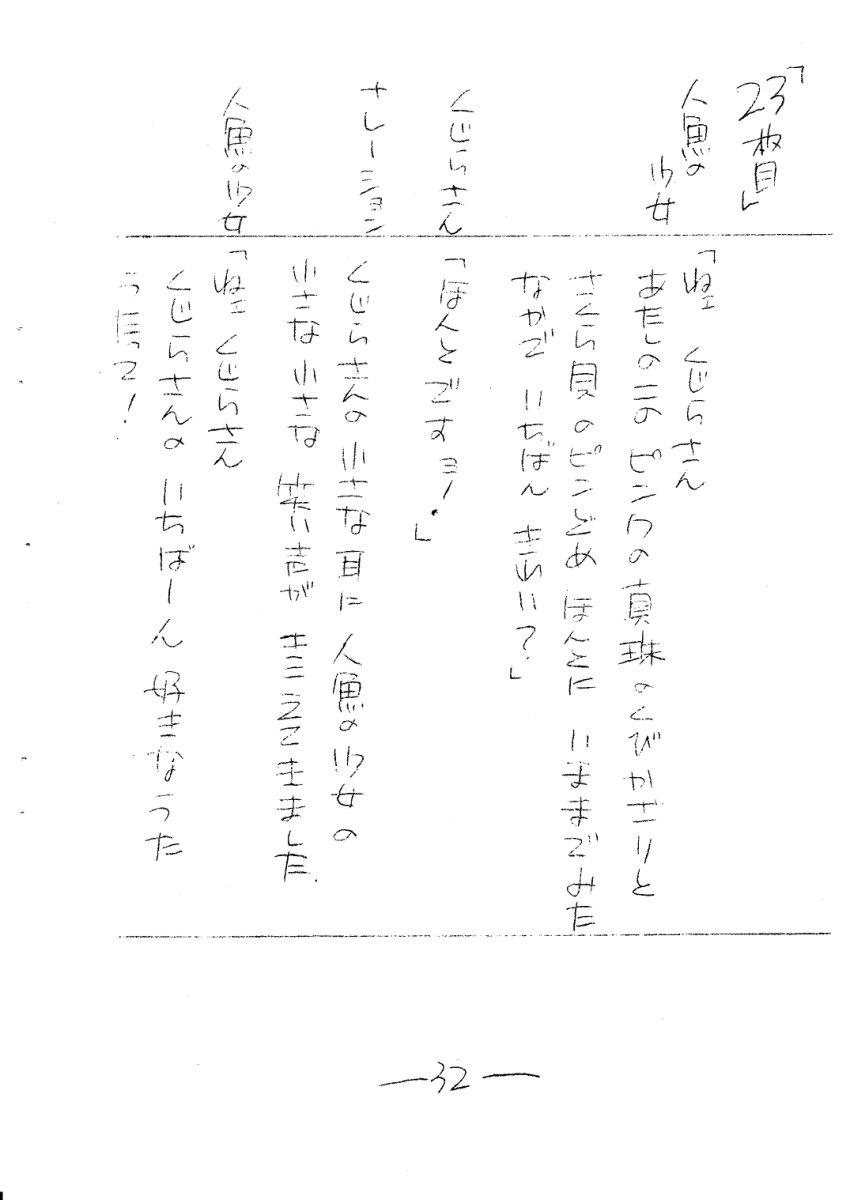 「23枚目」
人魚の
少女
「ねェ くじらさん
あたしのこの ピンクの真珠のくびかざりと
さくら貝のピンどめ ほんとに いままでみた
なかで いちばん きれい?」
くじらさん
「ほんとですョー。」
ナレーション
くじらさんの小さな耳に 人魚の少女の
小さな小さな 笑い声が きこえてきました.
人魚の少女
「ねェ くじらさん
くじらさんの いちばーん 好きなうた
うたって!
—32—